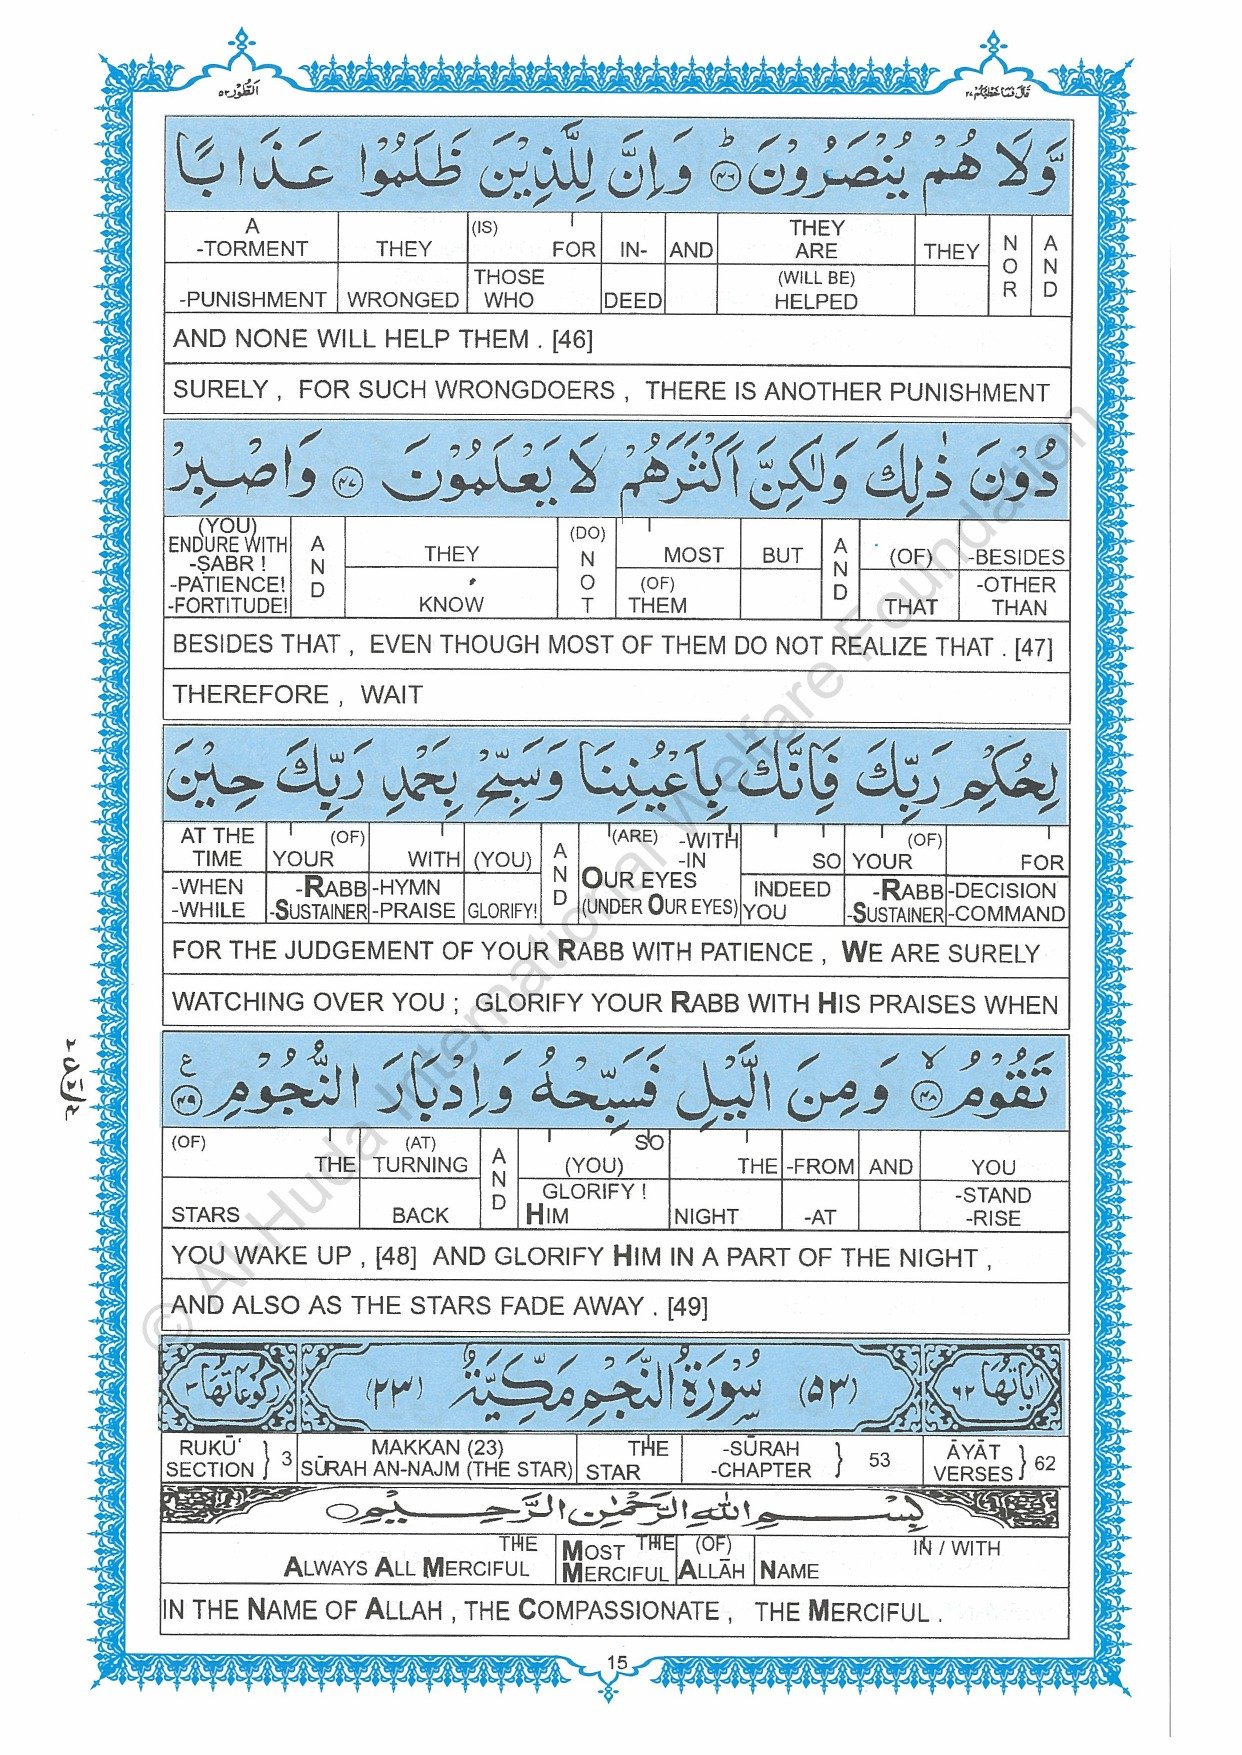 الطُّوْر ٥٢
قَالَ فَمَا خَطْبُكُمْ ٢٧
وَّلَا هُمْ يُنْصَرُوْنَ ؕ ﴿٤٦﴾ وَاِنَّ لِلَّذِيْنَ ظَلَمُوْا عَذَابًا
A -TORMENT -PUNISHMENT | THEY WRONGED | (IS) FOR THOSE WHO | IN- DEED | AND | THEY ARE (WILL BE) HELPED | THEY | NOR | AND
AND NONE WILL HELP THEM . [46]
SURELY , FOR SUCH WRONGDOERS , THERE IS ANOTHER PUNISHMENT
دُوْنَ ذٰلِكَ وَلٰكِنَّ اَكْثَرَهُمْ لَا يَعْلَمُوْنَ ﴿٤٧﴾ وَاصْبِرْ
(YOU) ENDURE WITH -ṢABR ! -PATIENCE! -FORTITUDE! | AND | THEY KNOW | (DO) NOT | MOST (OF) THEM | BUT | AND | (OF) THAT | -BESIDES -OTHER THAN
BESIDES THAT , EVEN THOUGH MOST OF THEM DO NOT REALIZE THAT . [47]
THEREFORE , WAIT
لِحُكْمِ رَبِّكَ فَاِنَّكَ بِاَعْيُنِنَا وَسَبِّحْ بِحَمْدِ رَبِّكَ حِيْنَ
AT THE TIME -WHEN -WHILE | (OF) YOUR -RABB -SUSTAINER | WITH -HYMN -PRAISE | (YOU) GLORIFY! | AND | (ARE) -WITH -IN OUR EYES (UNDER OUR EYES) | SO INDEED YOU | (OF) YOUR -RABB -SUSTAINER | FOR -DECISION -COMMAND
FOR THE JUDGEMENT OF YOUR RABB WITH PATIENCE , WE ARE SURELY
WATCHING OVER YOU ; GLORIFY YOUR RABB WITH HIS PRAISES WHEN
تَقُوْمُ ۙ ﴿٤٨﴾ وَمِنَ الَّيْلِ فَسَبِّحْهُ وَاِدْبَارَ النُّجُوْمِ ﴿٤٩﴾ ع
(OF) THE STARS | (AT) TURNING BACK | AND | SO (YOU) GLORIFY ! HIM | THE NIGHT | -FROM -AT | AND | YOU -STAND -RISE
YOU WAKE UP , [48] AND GLORIFY HIM IN A PART OF THE NIGHT ,
AND ALSO AS THE STARS FADE AWAY . [49]
اٰيَاتُهَا ٦٢ (٥٣) سُوْرَةُ النَّجْمِ مَكِّيَّةٌ (٢٣) رُكُوْعَاتُهَا ٣
RUKŪ‘ SECTION } 3 | MAKKAN (23) SŪRAH AN-NAJM (THE STAR) | THE STAR | -SŪRAH -CHAPTER } 53 | ĀYĀT VERSES } 62
بِسْمِ اللهِ الرَّحْمٰنِ الرَّحِيْمِ
THE ALWAYS ALL MERCIFUL | THE MOST MERCIFUL | (OF) ALLĀH | IN / WITH NAME
IN THE NAME OF ALLAH , THE COMPASSIONATE , THE MERCIFUL .
15
© Al Huda International Welfare Foundation